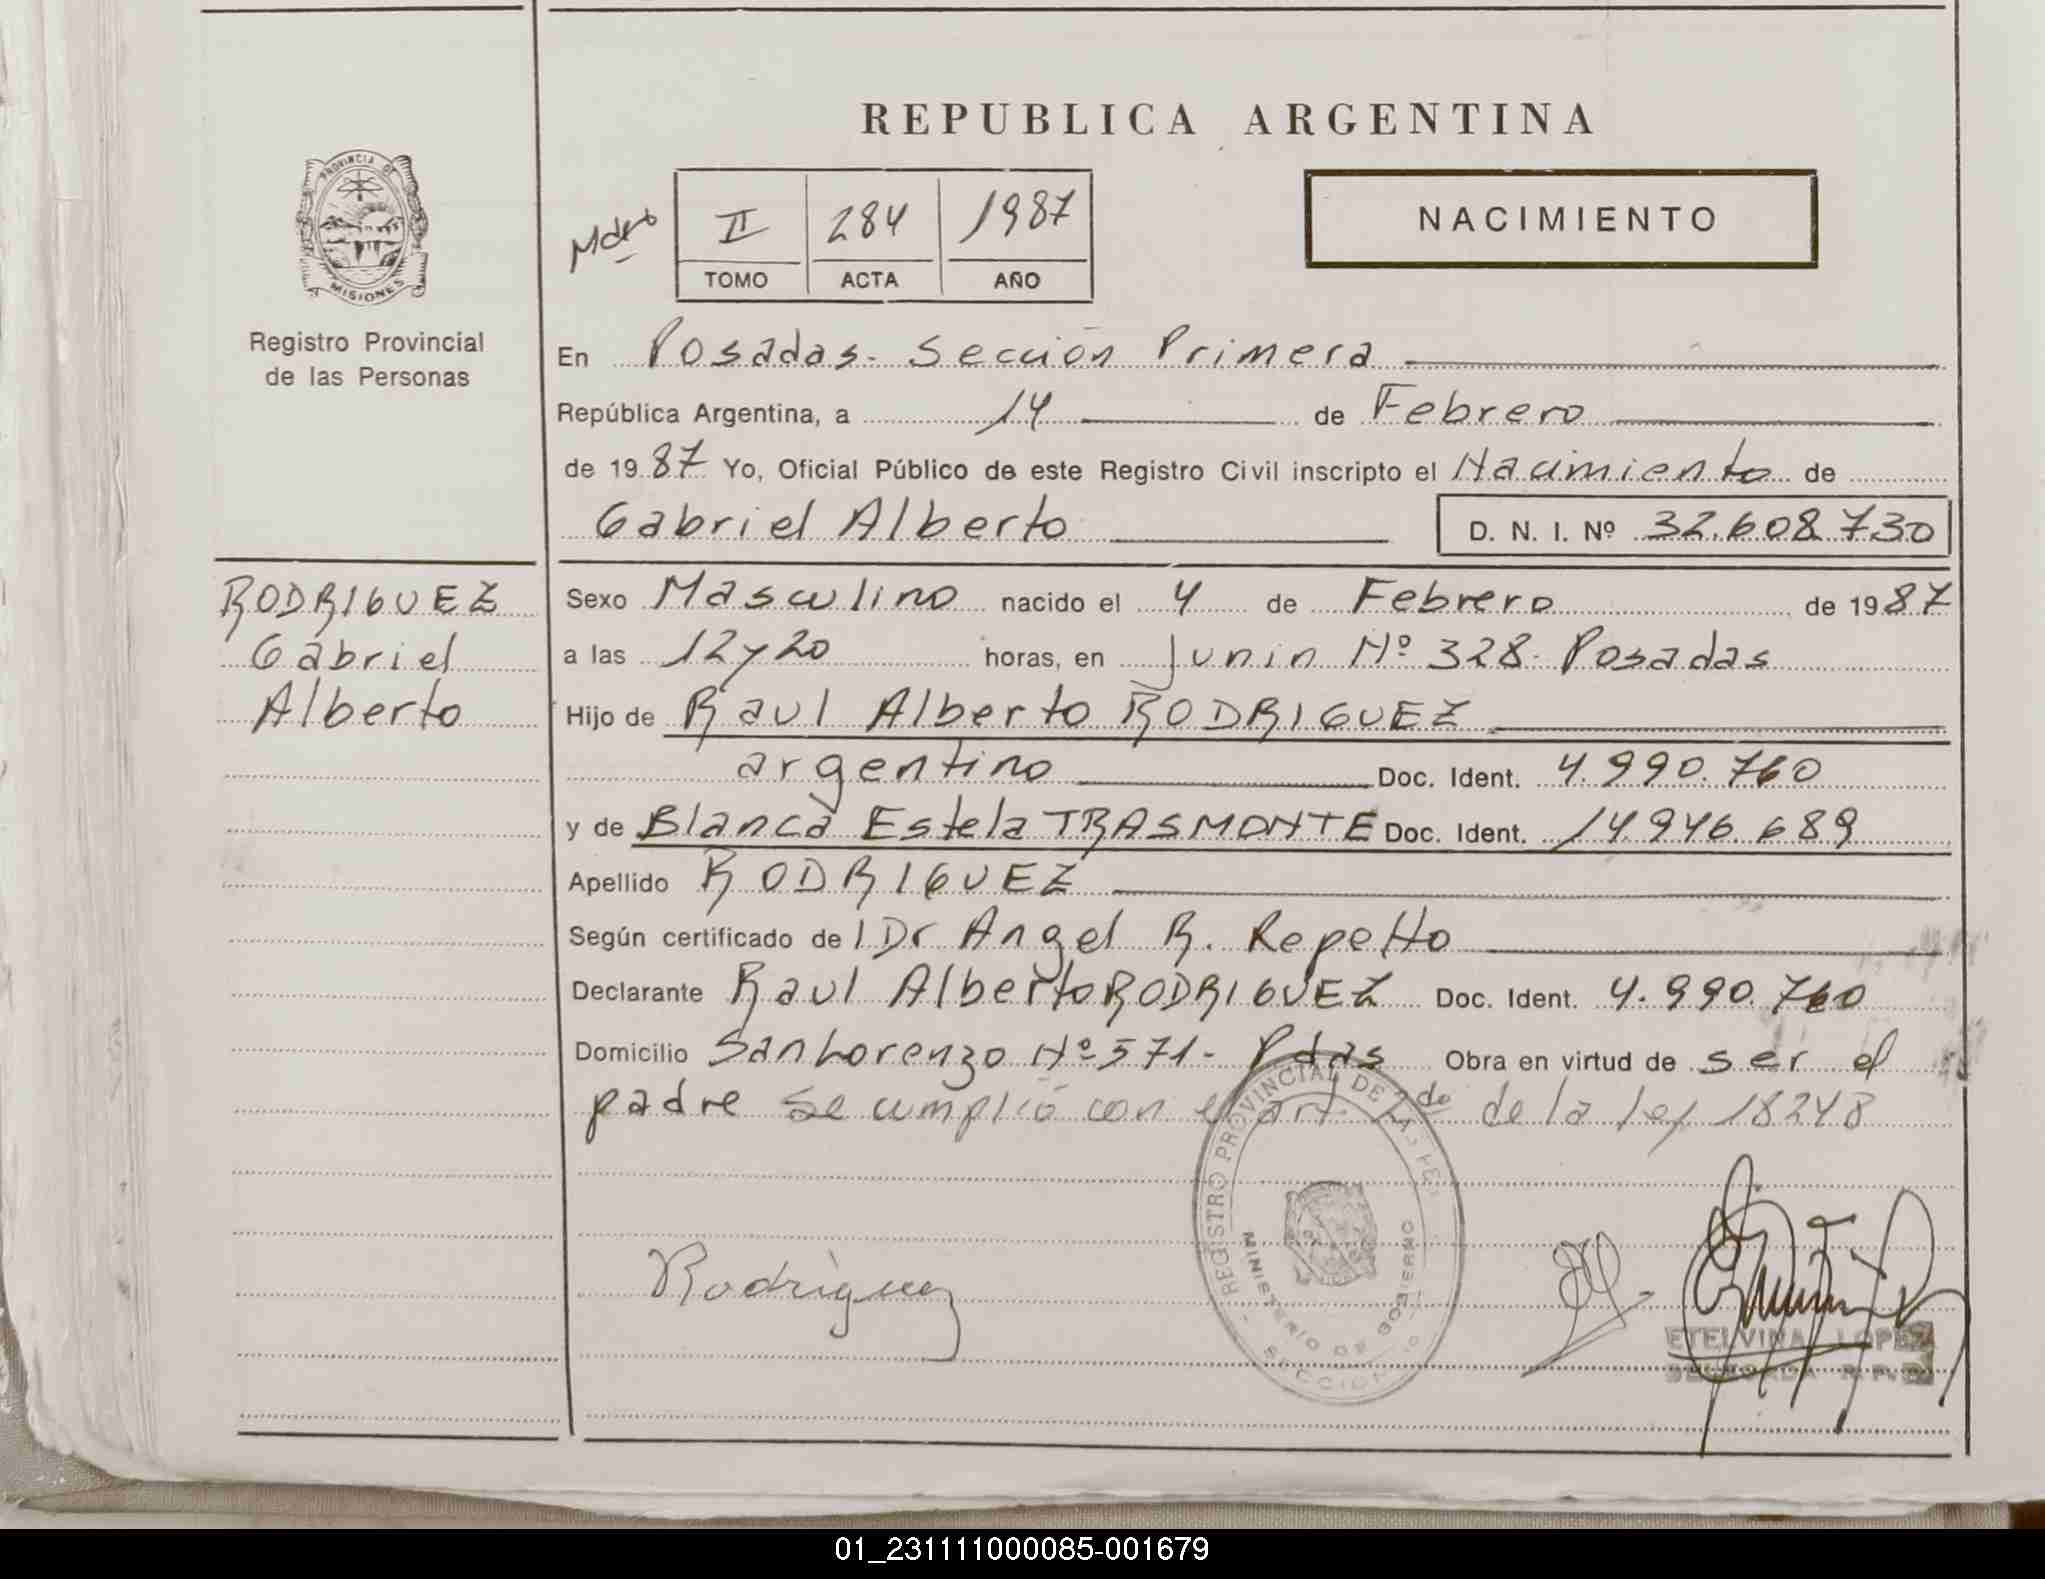 REPUBLICA ARGENTINA
PROVINCIA DE
MISIONES
Registro Provincial
de las Personas
II 284 1987
TOMO ACTA AÑO
NACIMIENTO
En Posadas- Sección Primera
República Argentina, a 14 de Febrero
de 1987 Yo, Oficial Público de este Registro Civil inscripto el Nacimiento de
Gabriel Alberto D. N. I. Nº 32.608.730
RODRIGUEZ
Gabriel
Alberto
Sexo Masculino nacido el 4 de Febrero de 1987
a las 12 y 20 horas, en Junin Nº 328- Posadas
Hijo de Raul Alberto RODRIGUEZ
argentino Doc. Ident. 4.990.760
y de Blanca Estela TRASMONTE Doc. Ident. 14.946.689
Apellido RODRIGUEZ
Según certificado del Dr Angel R. Repetto
Declarante Raul Alberto RODRIGUEZ Doc. Ident. 4.990.760
Domicilio San Lorenzo Nº 571- Pdas Obra en virtud de ser el
padre se cumplió con el art. 2do de la ley 18248
REGISTRO PROVINCIAL DE LAS PER
MINISTERIO DE GOBIERNO
SECCION
Rodriguez
ETELVINA LOPEZ
01_231111000085-001679